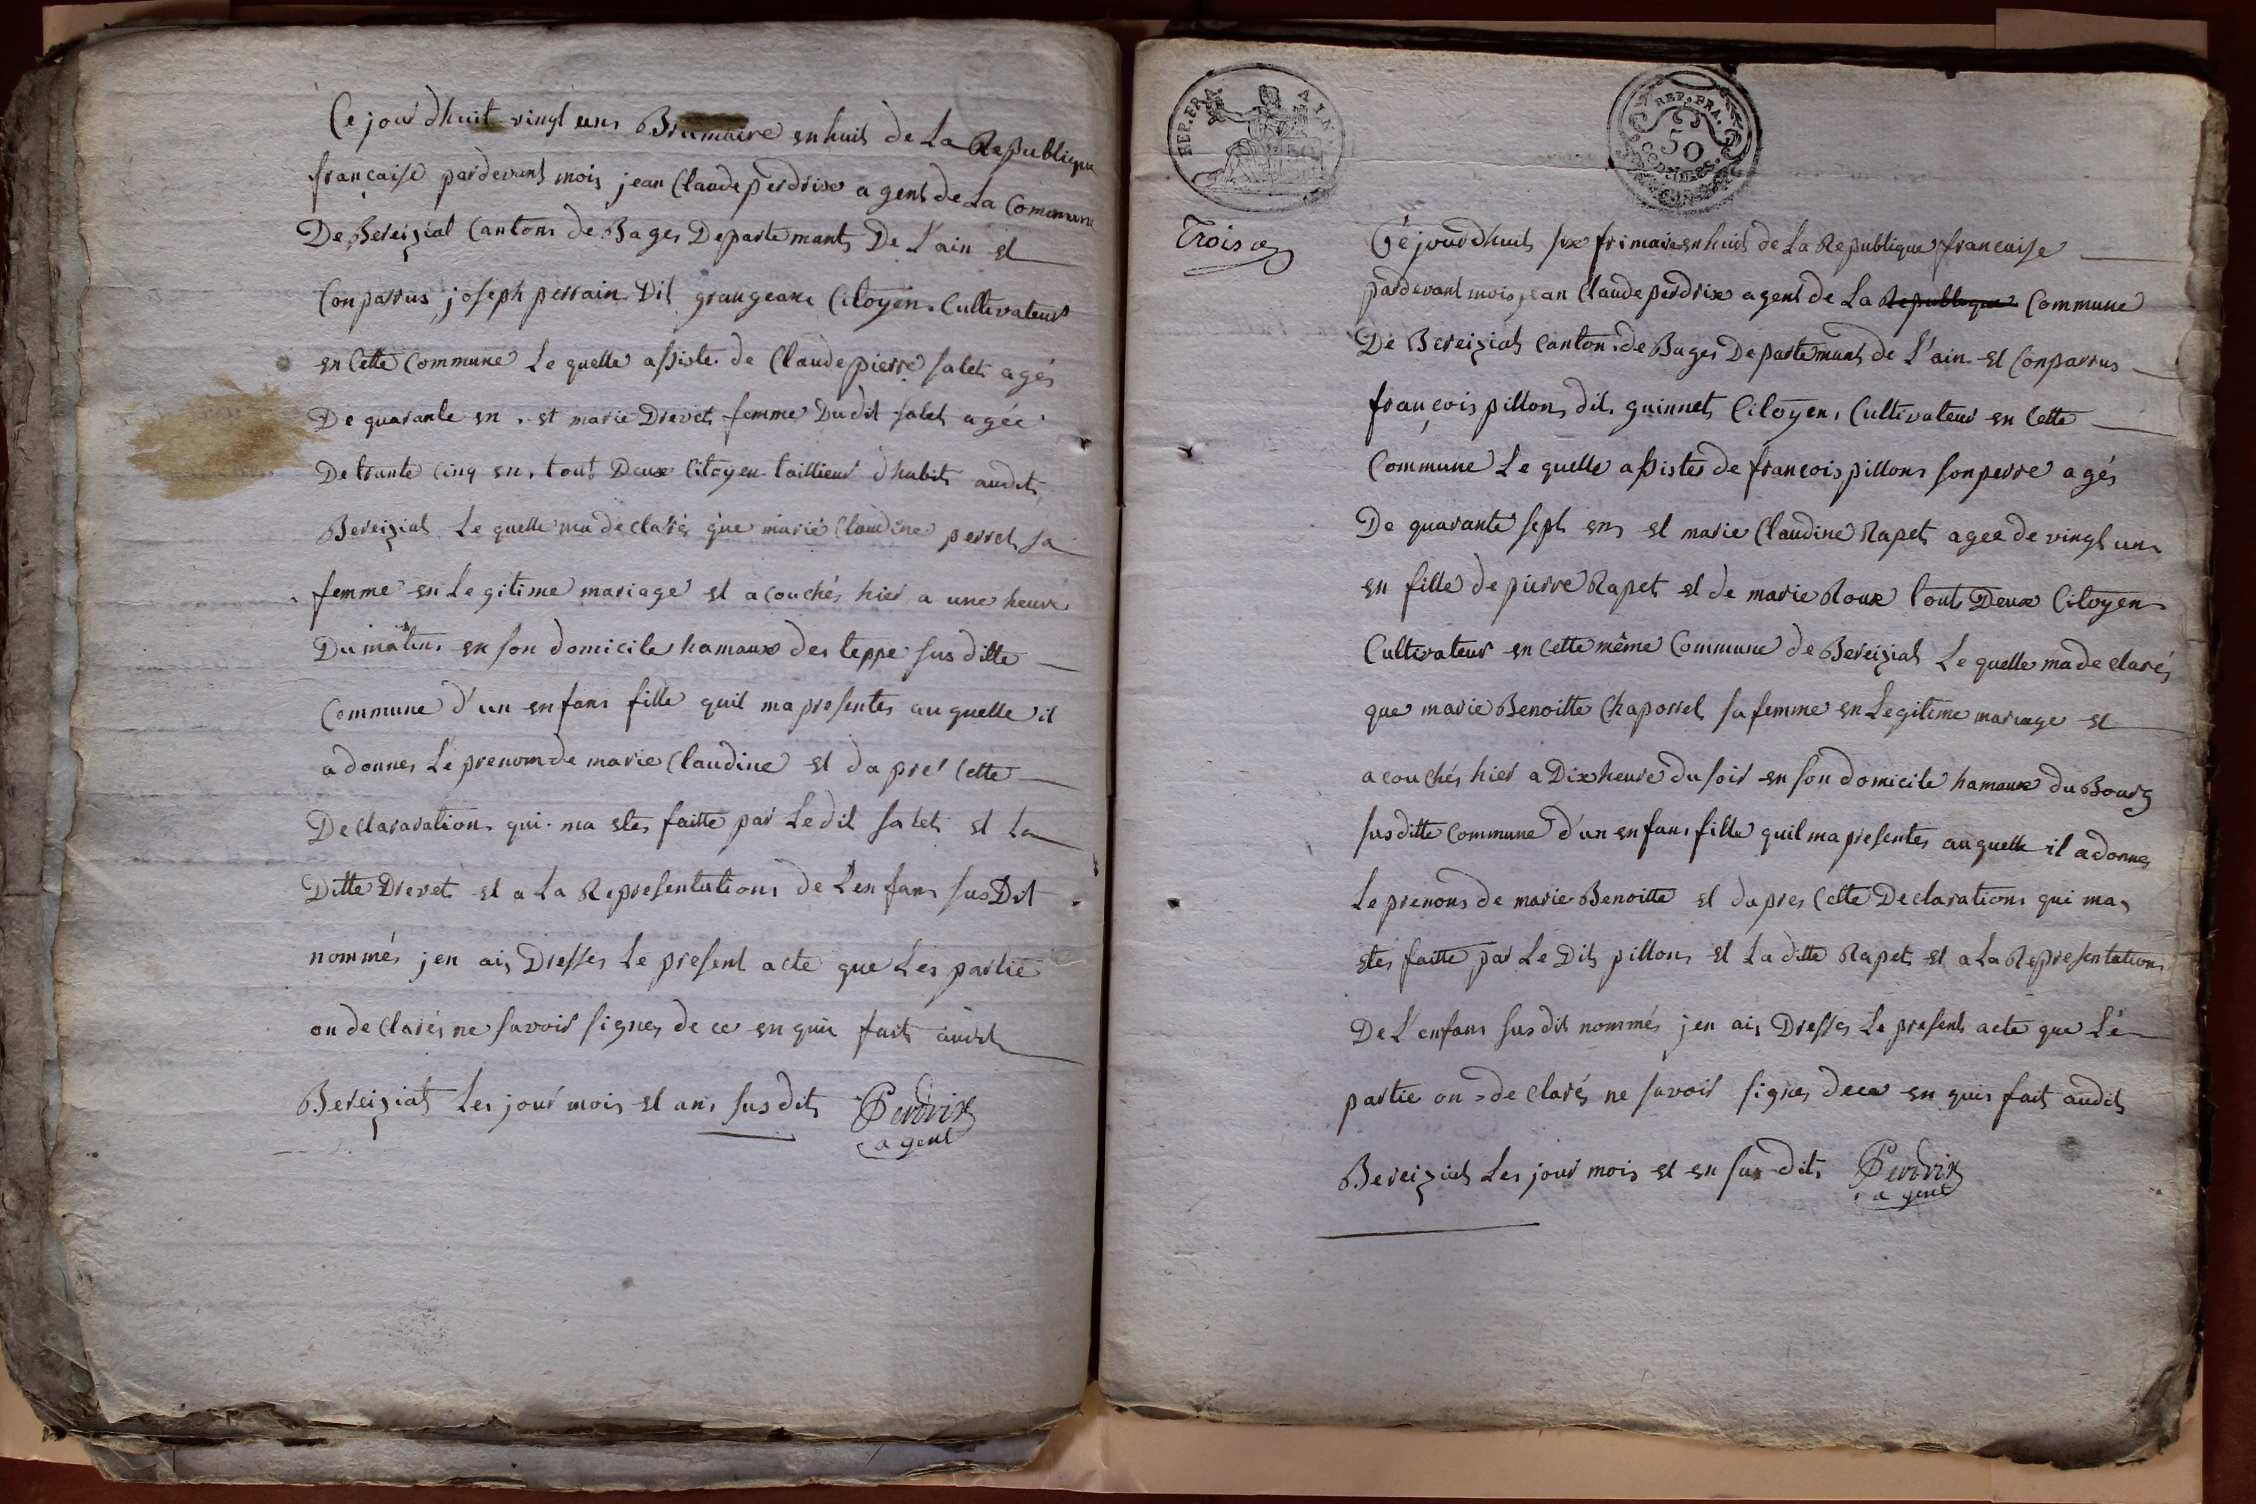 Ce jour dhuit vingt uns Brumaire en huit de La Republique
française pardevant mois jean Claude perdrise agent de La Commune
De Bereizial Cantons de Bages Departemants De L'ain et
Conparrus joseph perrain Dit grangeare Citoyen Cultivateur
en Cette Commune Le quelle assiste de Claude pierre salet agés
De quarante en et marie Drevet femme Du dit salet agée
De trante cinq en tout Deux Citoyen taillieur d'habits audit
Bereizial Le quelle ma declarés que marie Claudine perret sa
femme en Legitime mariage et acouchés hier a une heure
Du matin en son domicile hamaux des teppe sus ditte
Commune d'un enfans fille quil ma presentes au quelle il
a donnes Le prenom de marie Claudine et da pre' Cette
Declararations qui ma etes faitte par Le dit salet et La
Ditte Drevet et a La Representations de L'enfans sus Dit
nommés jen ais Dresses Le present acte que Les partie
on declarés ne savoir signes de ce en quis fait audit
Bereiziat Les jour mois et ans sus dits Perdrix
agent
REP. FRA. AIN.
REP. FRA.
50
CENTIMES.
Trois
Ce jour dhuit six frimaire en huit de La Republique francaise
pardevant mois jean Claude perdrix agent de La Republique Commune
De Bereiziat Canton de Bages Departemants de L'ain et Conparrus
françois pillon dit guinnet Citoyen Cultivateur en Cette
Commune Le quelle assistes de françois pillons son perre agés
De quarante sept en et marie Claudine Rapet agee de vingt un
en fille de pierre Rapet et de marie Roux tout Deux Citoyen
Cultivateur en Cette même Commune de Bereiziat Le quelle ma declarés
que marie Benoitte Chaporret sa femme en Legitime mariage et
acouchés hier a Dix heure du soir en son domicile hamaux du Bourg
sus ditte Commune d'un enfans fille quil ma presentes au quelle il a donnes
Le prenons de marie Benoitte et dapres Cette Declarations qui ma
etes faitte par Le Dit pillons et La ditte Rapet et a La Representations
De L'enfans sus dit nommés jen ais Dresses Le present acte que Lé
partie on declarés ne savoir signes dece en quis fait audit
Bereiziat Les jour mois et en sus dits Perdrix
agent